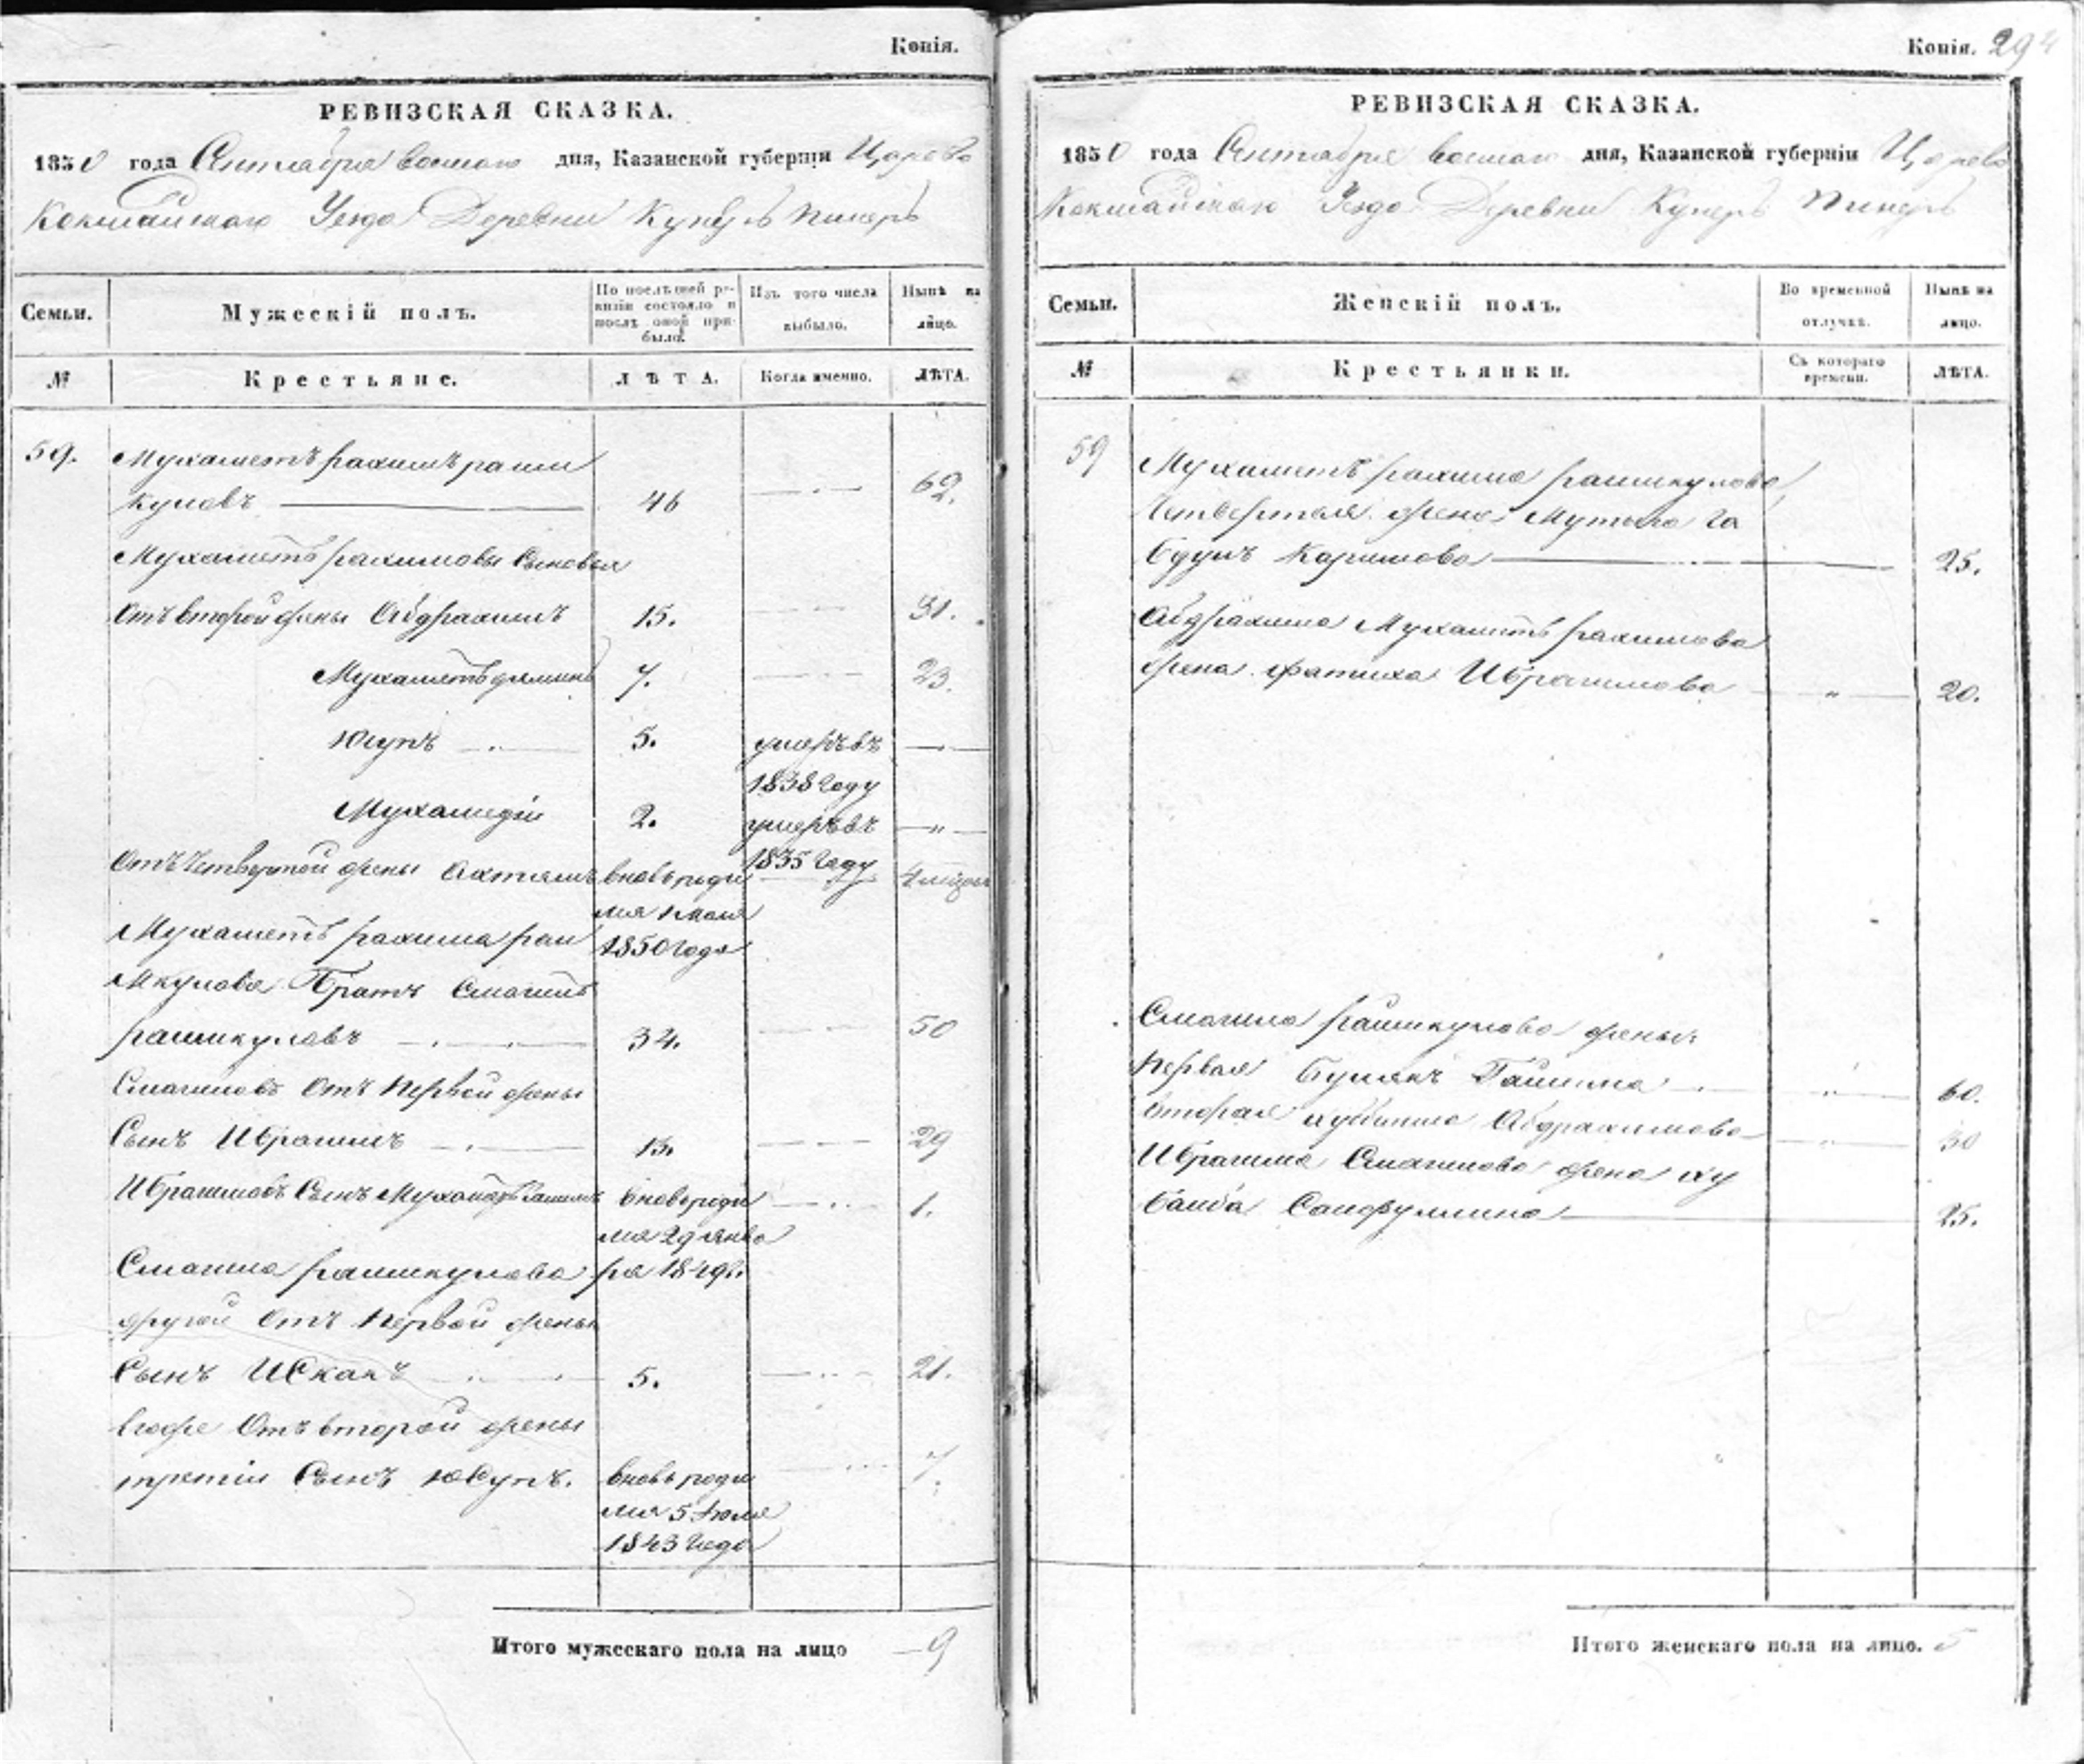 Копія.
РЕВИЗСКАЯ СКАЗКА.
1850 года Сентября восмаго дня, Казанской губерніи Царево
Кокшайскаго Уезда Деревни Куперъ Пинеръ
Семьи.
Мужескій полъ.
По послѣдней ре-
визіи состояло и
послѣ оной при-
было.
Изъ того числа
выбыло.
Нынѣ на
лицо.
№
Крестьяне.
ЛѢТА.
Когда именно.
ЛѢТА.
59. Мухаметъ рахимъ раши
куловъ 46 62.
Мухаметъ рахимовы Сыновья
Отъ второй жены Абдрахимъ 15. 31.
7. 23.
Юсупъ 5. умеръ въ
1838 году
Мухамедіи 2. умеръ въ
1835 году
Отъ Четвертой жены вновь роди 4 месяца
лся 1 мая
1850 года
Мухаметъ рахима раи
мкулова Братъ Смагилъ
рашикуловъ 34. 50
Смагиловъ Отъ Первой жены
Сынъ Ибрагимъ 13. 29
Ибрагимовъ Сынъ вновь роди 1.
лся 29 янва
ря 1849г.
Смагила рашикулова
другой Отъ Первой жены
Сынъ Искакъ 5. 21.
Егоже Отъ второй жены
третіи Сынъ Юсупъ. вновь роди 7.
лся 5 Июля
1843 года
Итого мужескаго пола на лицо 9
Копія. 294
РЕВИЗСКАЯ СКАЗКА.
1850 года Сентября восмаго дня, Казанской губерніи Царево
Кокшайскаго Уезда Деревни Куперъ Пинеръ
Семьи.
Женскій полъ.
Во временной
отлучкѣ.
Нынѣ на
лицо.
№
Крестьянки.
Съ котораго
времени.
ЛѢТА.
59 Мухаметъ рахима рашикулова
Четвертая жена Мутыга
Каримова 25.
Абдрахима Мухаметъ рахимова
жена фатиха Ибрагимова 20.
Смагила рашикулова жены:
Первая Булякъ 60.
вторая Абдрахимова 50
Ибрагима Смагилова жена ху
баиба Сайфуллина 25.
Итого женскаго пола на лицо. 5